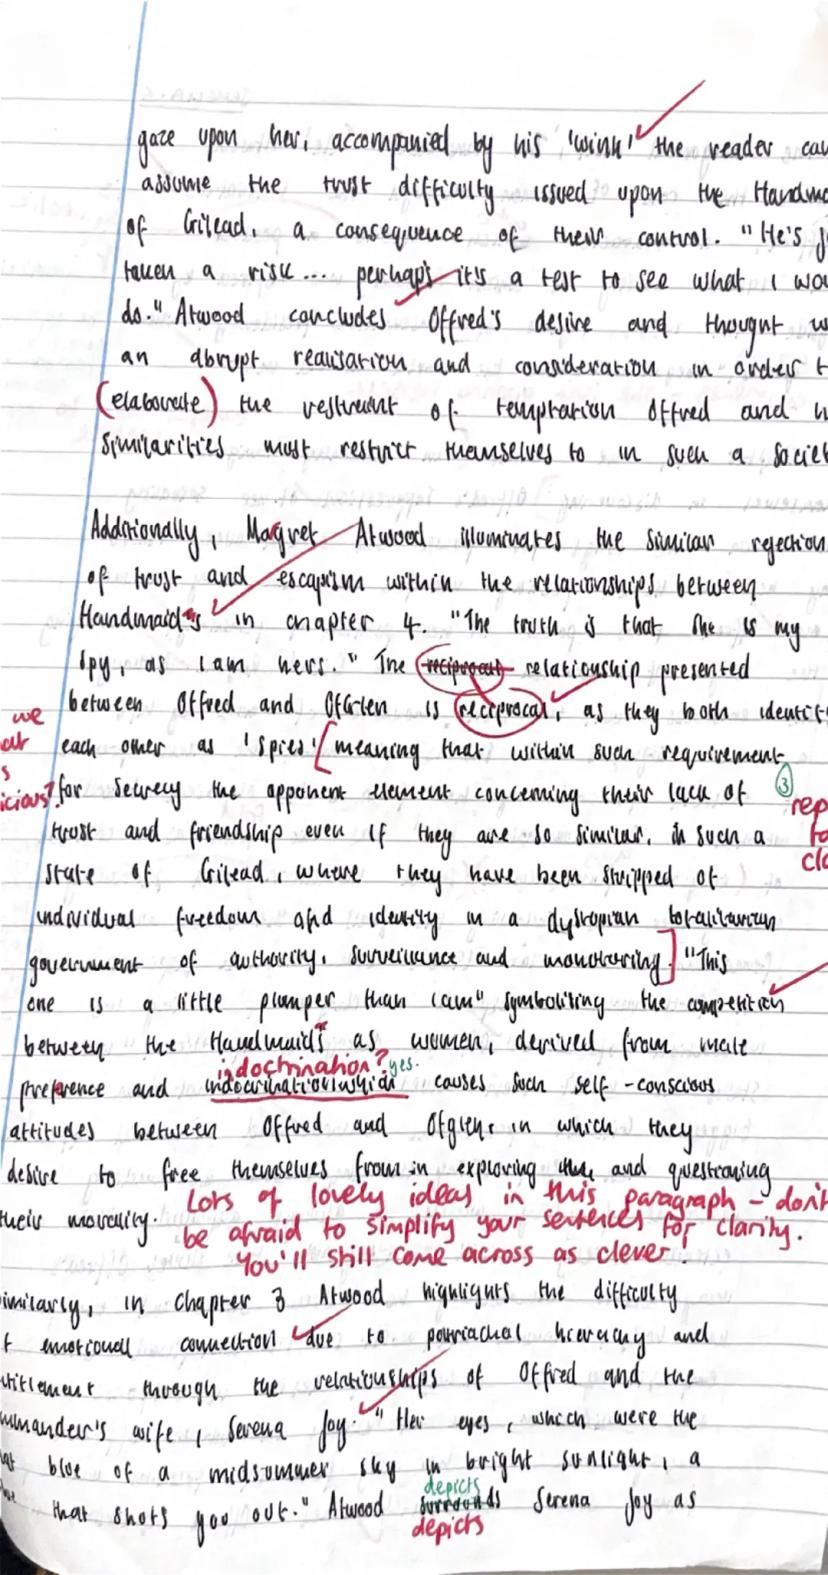 gaze upon her, accompanied by his 'wink' the reader can
assume the trust difficulty issued upon the Handma
of Gilead, a consequence of their control. "He's j
taken a risk... perhaps it's a test to see what I wou
do." Atwood concludes Offred's desire and thought w
an abrupt realisation and consideration in order t
(elaborate) the restraint of temptation Offred and h
similarities must restrict themselves to in such a societ
Additionally, Magret Atwood illuminates the similar rejection
of trust and escapism within the relationships between
Handmaid's in chapter 4. "The truth is that she is my
spy, as I am hers." The reciprocal relationship presented
between Offred and Ofglen is reciprocal, as they both identif
we
each other as 'spies' [meaning that within such requirement
icious? for secrecy the opponent element concerning their lack of
③ rep
trust and friendship even if they are so similar, in such a
fo
cla
state of Gilead, where they have been stripped of
individual freedom and identity in a dystopian totalitarian
government of authority, surveillance and monotoring.] "This
one is a little plumper than I am" symbolising the competition
between the Handmaid's as women, derived from male
indoctrination? yes.
preference and indocrination which causes such self-conscious
attitudes between Offred and Ofglen, in which they
desire to free themselves from in exploring and questioning
their morality.
Lots of lovely ideas in this paragraph – don't
be afraid to simplify your sentences for clarity.
You'll still come across as clever.
imilarly, in Chapter 3 Atwood highlights the difficulty
f emotional connection due to patriachal hierachy and
ntitlement through the relationships of Offred and the
mmander's wife, Serena Joy. "Her eyes, which were the
blue of a midsummer sky in bright sunlight, a
that shots you out." Atwood surrounds Serena Joy as
depicts
depicts